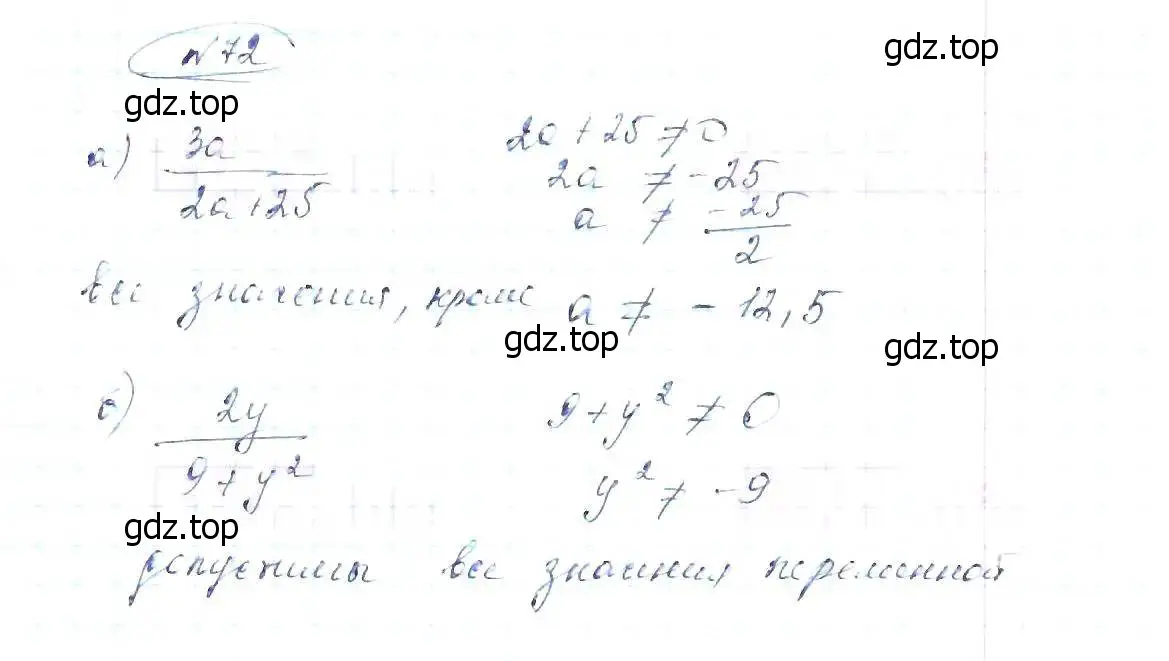 № 72
gdz.top
gdz.top
а) 3a / 2a+25 2a+25≠0
2a ≠ -25
a ≠ -25/2
все значения, кроме a ≠ -12,5
gdz.top
gdz.top
б) 2y / 9+y² 9+y² ≠ 0
y² ≠ -9
gdz.top
допустимы все значения переменной